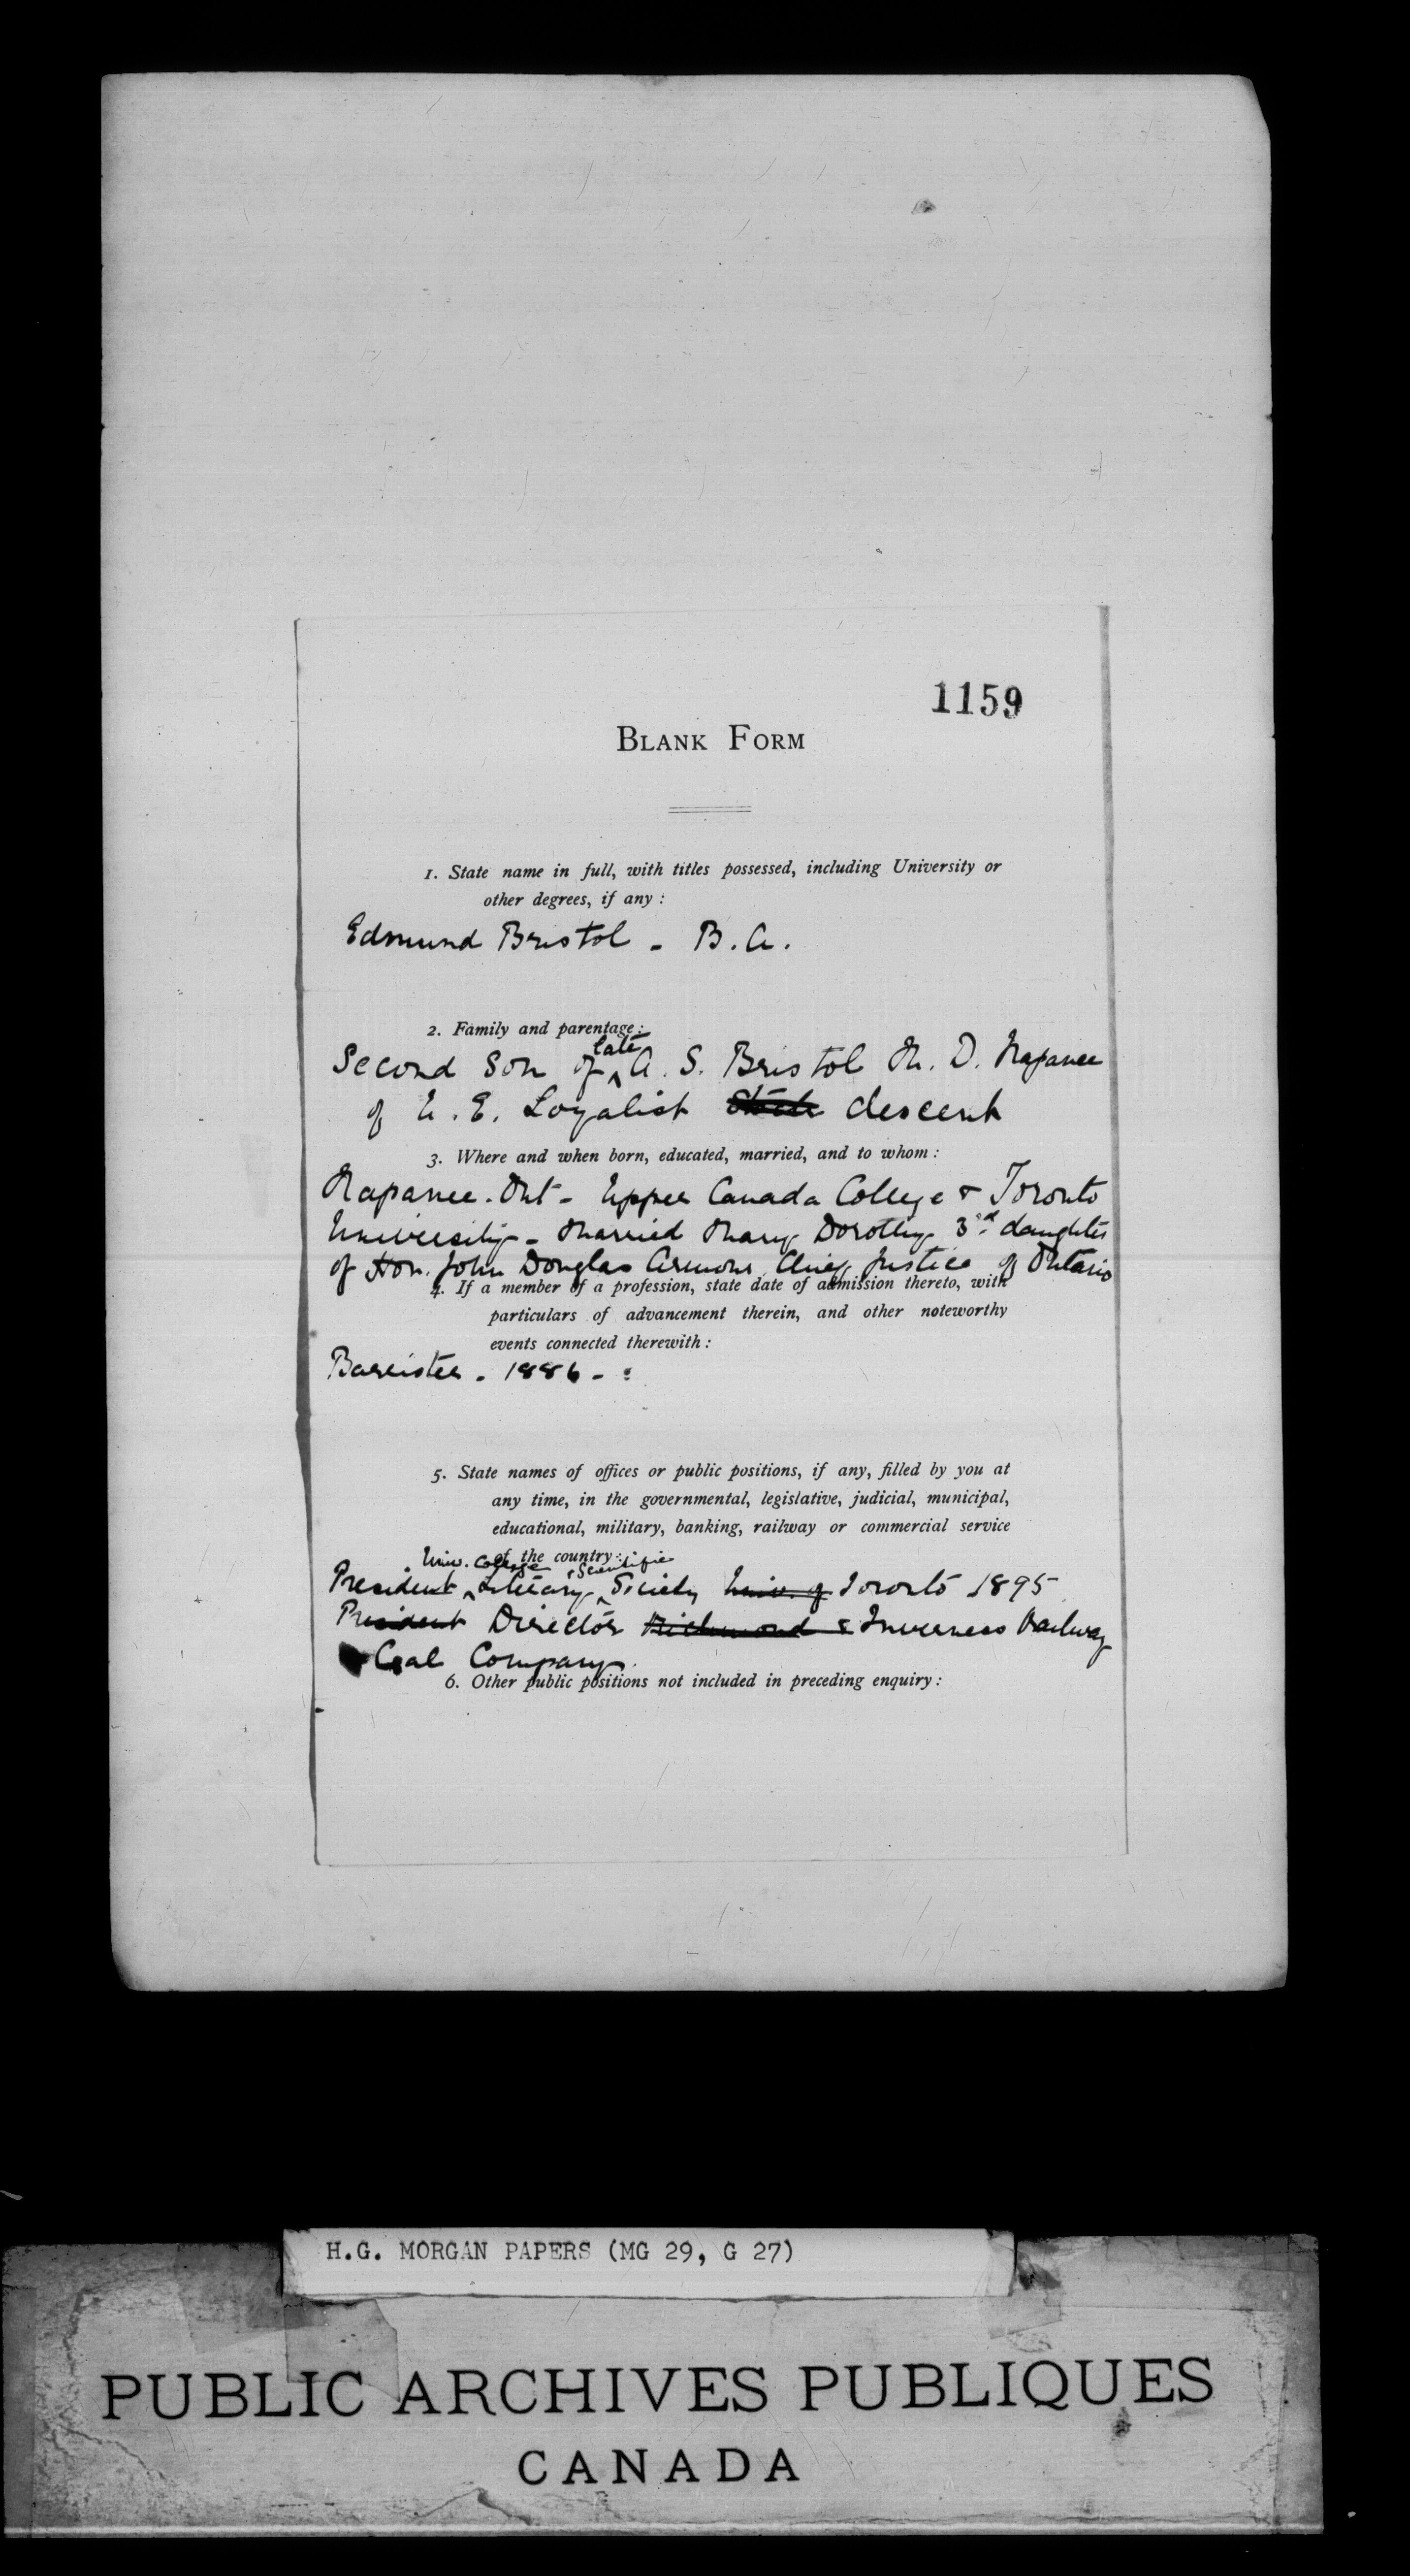 1159
BLANK FORM
1. State name in full, with titles possessed, including University or
other degrees, if any :
Edmund Bristol - B.A.
2. Family and parentage :
late
Second Son of ^ A. S. Bristol M. D. Napanee
of U. E. Loyalist descent
3. Where and when born, educated, married, and to whom :
Napanee. Ont - Upper Canada College & Toronto
University - Married Mary Dorothy 3rd daughter
of Hon. John Douglas Armour Chief Justice of Ontario
4. If a member of a profession, state date of admission thereto, with
particulars of advancement therein, and other noteworthy
events connected therewith :
Barrister - 1886 -
5. State names of offices or public positions, if any, filled by you at
any time, in the governmental, legislative, judicial, municipal,
educational, military, banking, railway or commercial service
of the country :
Univ. College & Scientific
President ^ Literary ^ Society Univ. of Toronto 1895
President Director Richmond & Inverness Railway
Coal Company.
6. Other public positions not included in preceding enquiry :
H.G. MORGAN PAPERS (MG 29, G 27)
PUBLIC ARCHIVES PUBLIQUES
CANADA